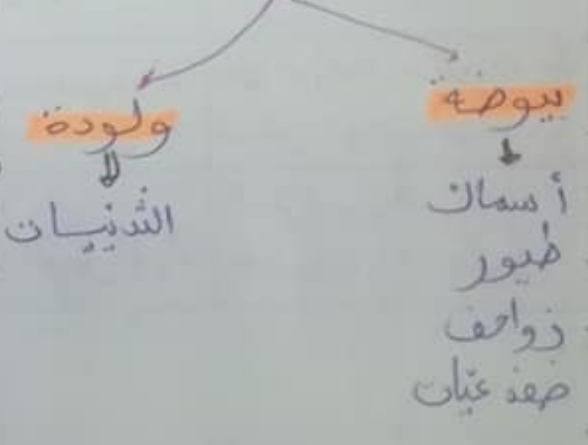 بيوضة
أسماك
طيور
زواحف
ضفدعيّات
ولودة
الثدييات